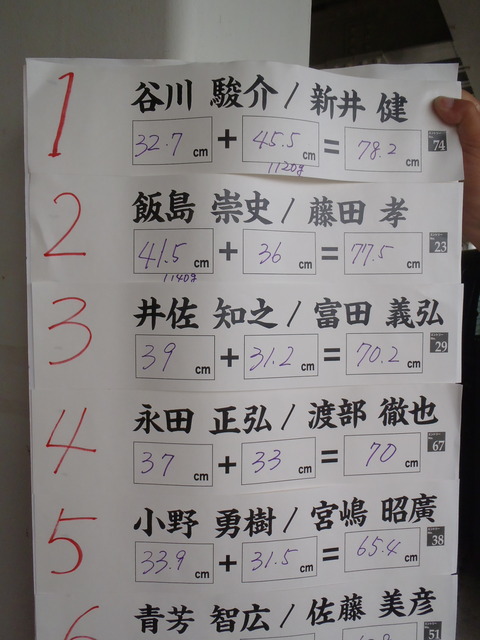 1 谷川 駿介 / 新井 健
32.7 cm + 45.5 cm = 78.2 cm 74
1120g
2 飯島 崇史 / 藤田 孝
41.5 cm + 36 cm = 77.5 cm 23
1140g
3 井佐 知之 / 富田 義弘
39 cm + 31.2 cm = 70.2 cm 29
4 永田 正弘 / 渡部 徹也
37 cm + 33 cm = 70 cm 67
5 小野 勇樹 / 宮嶋 昭廣
33.9 cm + 31.5 cm = 65.4 cm 38
6 青芳 智広 / 佐藤 美彦
51